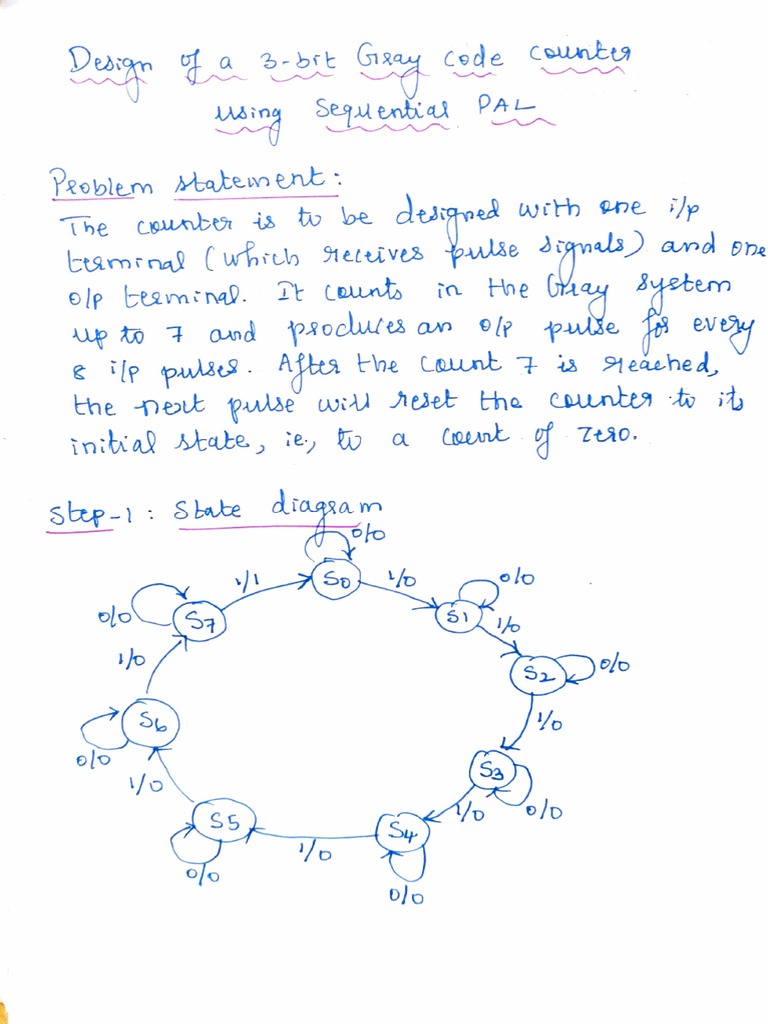 Design of a 3-bit Gray code counter
using Sequential PAL
Problem statement:
The counter is to be designed with one i/p
terminal (which receives pulse signals) and one
o/p terminal. It counts in the Gray system
up to 7 and produces an o/p pulse for every
8 i/p pulses. After the count 7 is reached,
the next pulse will reset the counter to its
initial state, ie, to a count of zero.
Step-1: State diagram
0/0
1/1 S0 1/0 0/0
0/0 S7 S1 1/0
1/0 S2 0/0
S6 1/0
0/0 S3
1/0 1/0 0/0
S5 S4
1/0
0/0
0/0